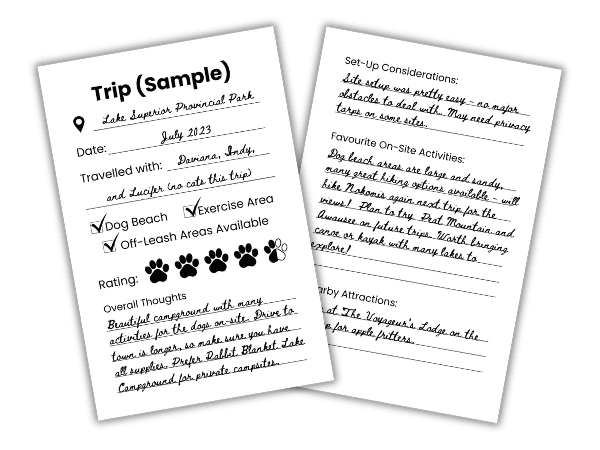 Trip (Sample)
Lake Superior Provincial Park
Date: July 2023
Travelled with: Daviana, Indy,
and Lucifer (no cats this trip)
Dog Beach Exercise Area
Off-Leash Areas Available
Rating:
Overall Thoughts
Beautiful campground with many
activities for the dogs on-site. Drive to
town is longer, so make sure you have
all supplies. Prefer Rabbit Blanket Lake
Campground for private campsites.
Set-Up Considerations:
Site setup was pretty easy - no major
obstacles to deal with. May need privacy
tarps on some sites.
Favourite On-Site Activities:
Dog beach areas are large and sandy,
many great hiking options available - will
hike Nokomis again next trip for the
views! Plan to try Peat Mountain and
Awausee on future trips. Worth bringing
canoe or kayak with many lakes to
explore!
arby Attractions:
at The Voyageur's Lodge on the
for apple fritters.